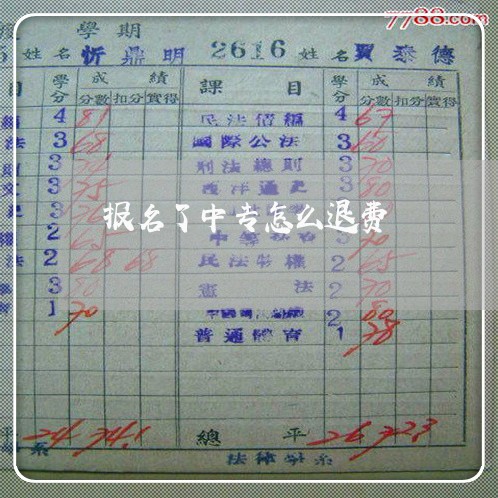 7788.com
學期
姓名 忻鼎明 2616 姓名 賈泰德
目 學分 成績 課目 學分 成績
分數 扣分 實得 分數 扣分 實得
4 81 民法債編 4 67
法 3 68 國際公法 3 60
3 刑法總則 3 70
3 75 西洋通史 3 80
報名了中专怎么退费
2 65 70
法 2 68 68 民法物權 2 65
3 80 憲法 2 70
1 70 2 80
普通體育 1 78
平 24 74.1 總平 26 72.3
系 法律學系